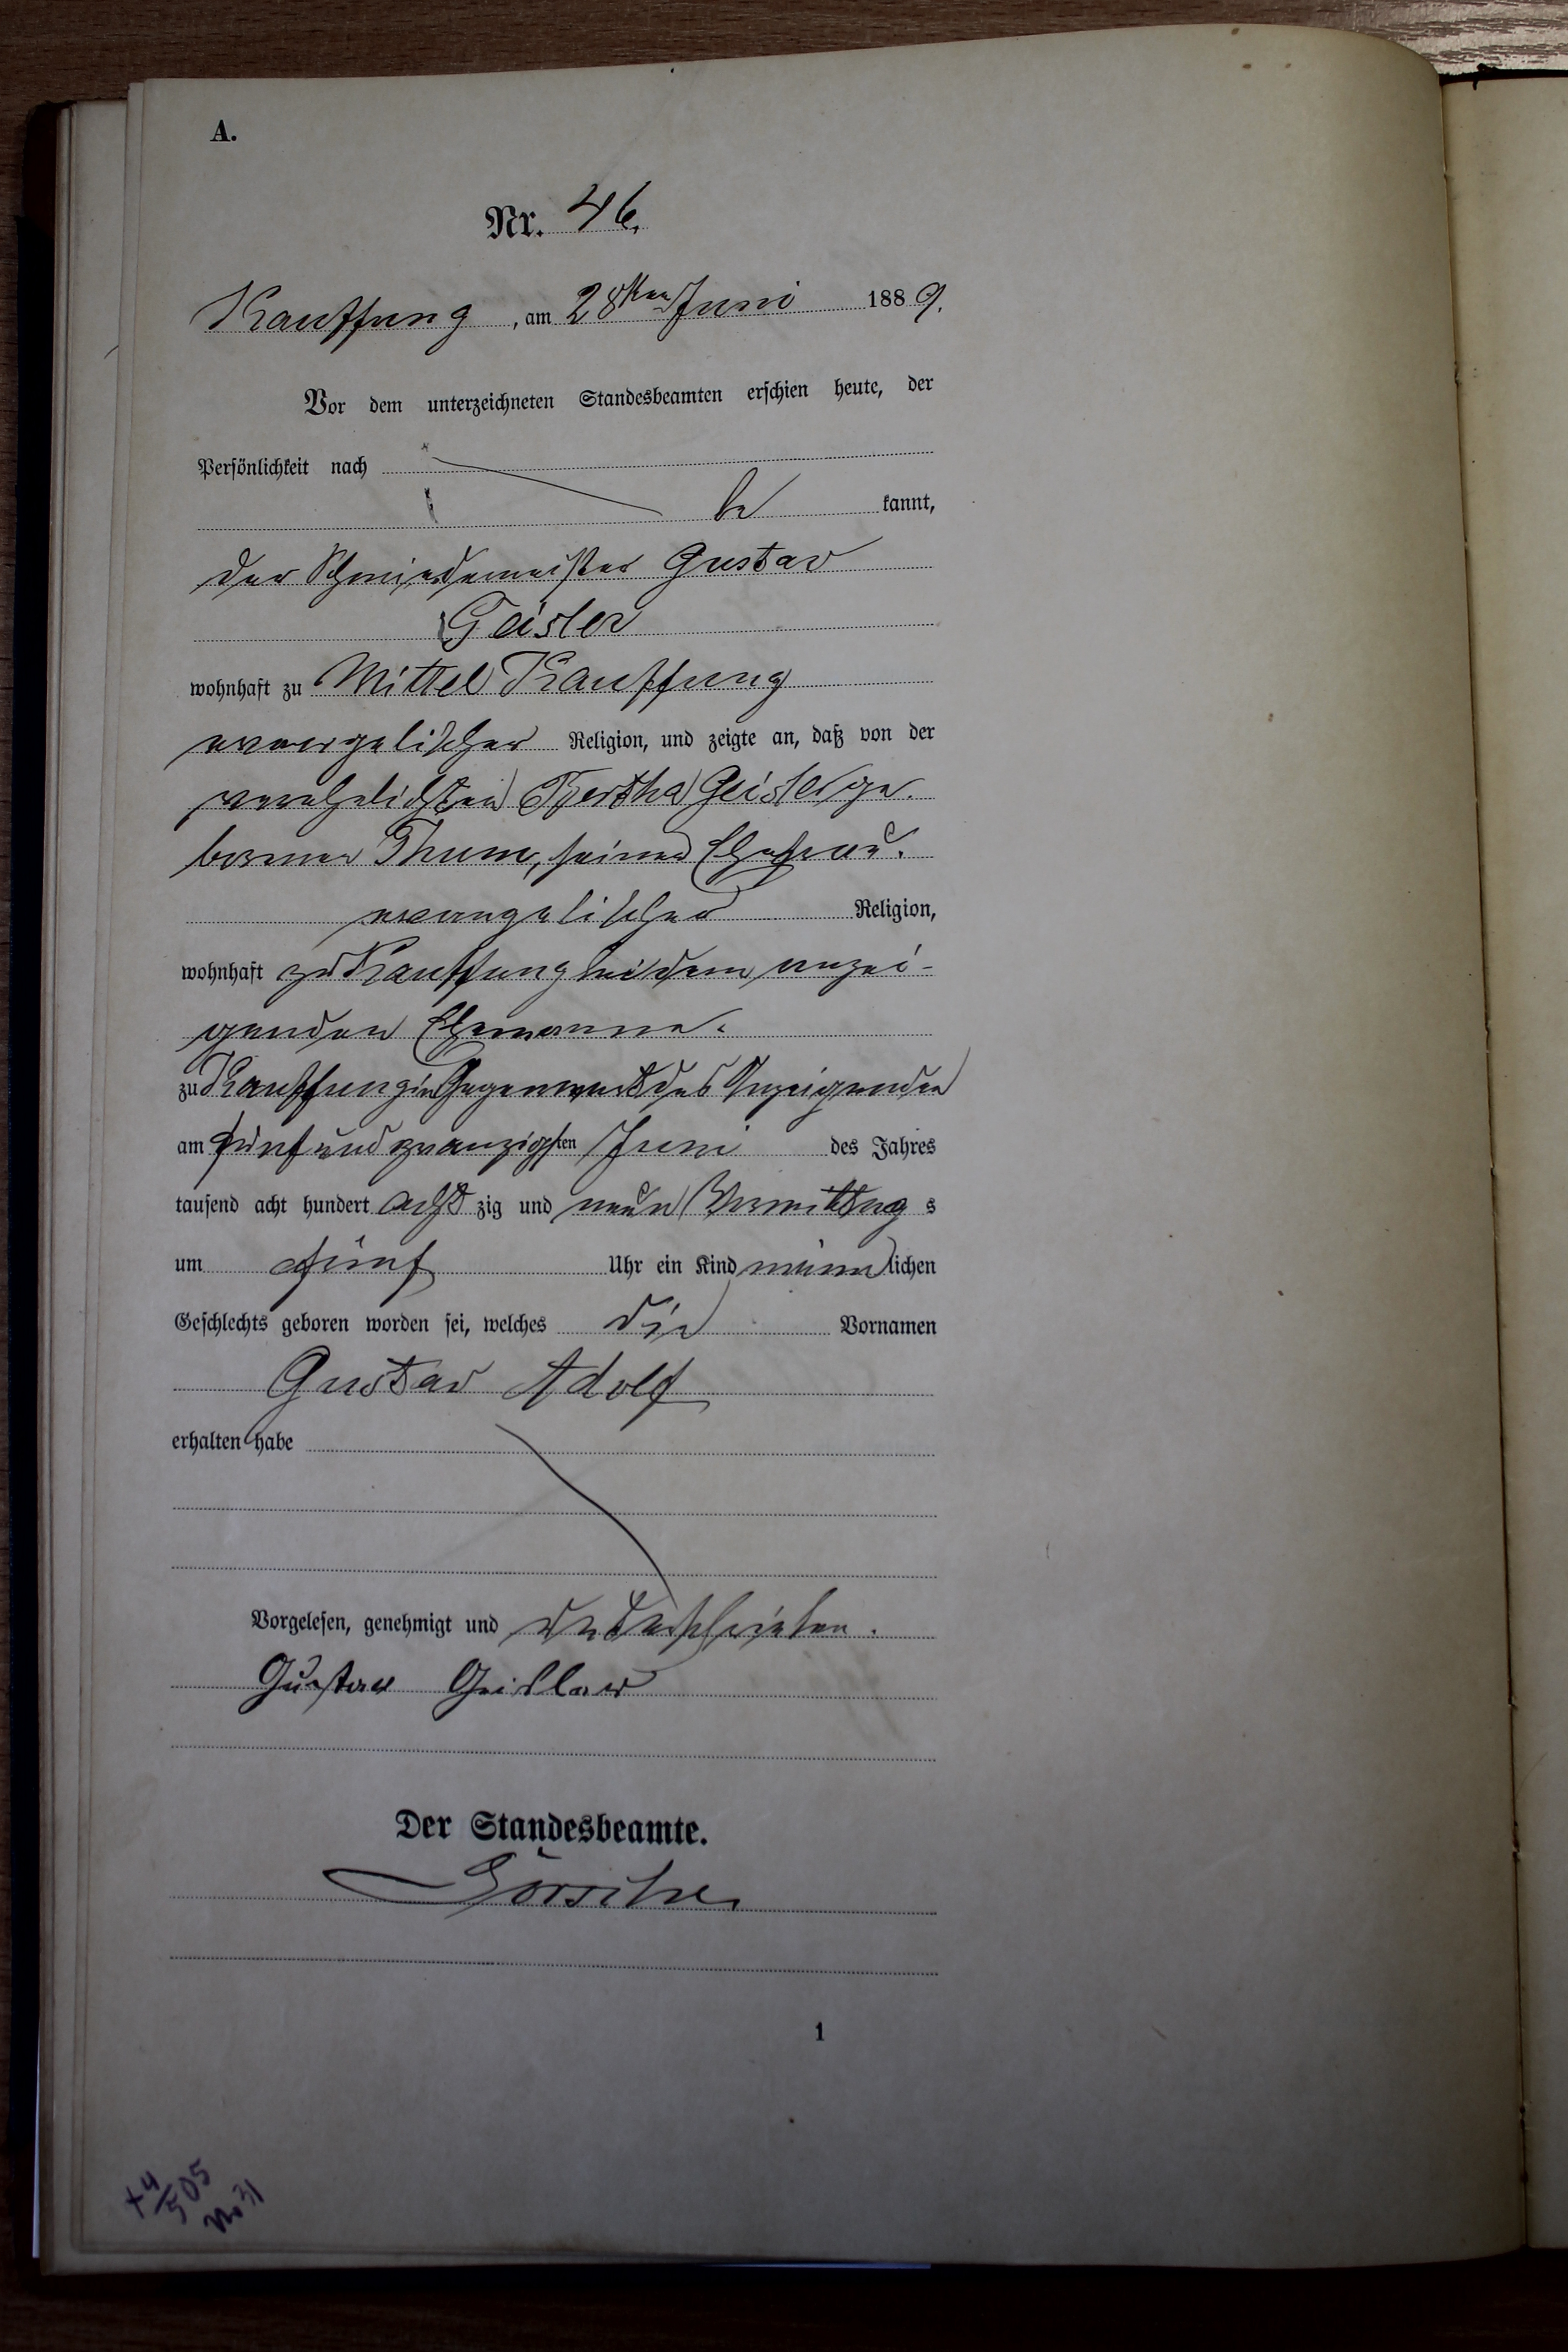 A.
Nr. 46.
Kauffung, am 28ten Juni 1889.
Vor dem unterzeichneten Standesbeamten erschien heute, der
Persönlichkeit nach
be kannt,
der Schmiedemeister Gustav
Geisler
wohnhaft zu Mittel Kauffung
evangelischer Religion, und zeigte an, daß von der
verehelichten Bertha Geisler ge-
borenen Thum, seiner Ehefrau.
evangelischer Religion,
wohnhaft zu Kauffung bei dem anzei-
genden Ehemanne.
zu Kauffung in Gegenwart des Anzeigenden
am fünf und zwanzigsten Juni des Jahres
tausend acht hundert acht zig und neun Vormittag s
um fünf Uhr ein Kind männ lichen
Geschlechts geboren worden sei, welches die Vornamen
Gustav Adolf
erhalten habe
Vorgelesen, genehmigt und unterschrieben.
Gustav Geisler
Der Standesbeamte.
1
+ 4/5 05
No 31